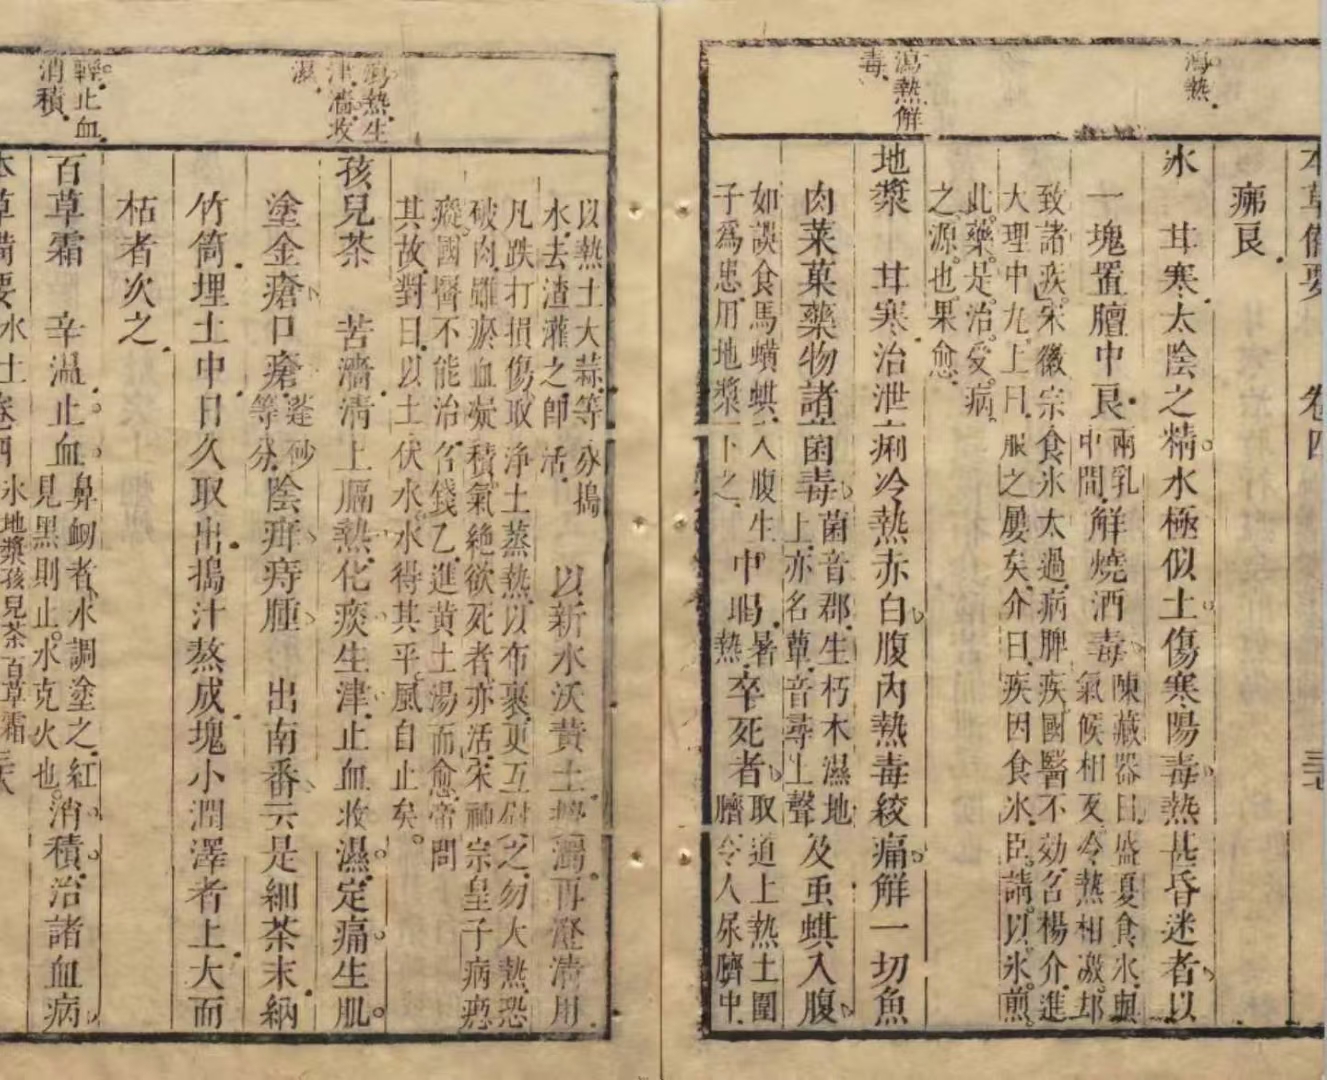 瀉熱
瀉熱解
毒
瀉熱生
津濇收
濕
輕止血
消積
本草備要 卷四
痱良
氷 甘寒太陰之精水極似土傷寒陽毒熱甚昏迷者以
一塊置膻中良兩乳中間解燒酒毒陳藏器曰盛夏食氷與氣候相反冷熱相激却
致諸疾宋徽宗食氷太過病脾疾國醫不効召楊介進
大理中丸上曰服之屢矣介曰疾因食氷臣請以氷煎
此藥是治受病
之源也果愈
地漿 甘寒治泄痢冷熱赤白腹內熱毒絞痛解一切魚
肉菜菓藥物諸菌毒菌音郡生朽木濕地上亦名蕈音尋上聲及虫蜞入腹
如誤食馬蟥蜞入腹生子爲患用地漿下之中暍暑熱卒死者取道上熱土圍臍令人尿臍中
以熱土大蒜等分搗水去渣灌之卽活 以新水沃黃土攪濁再澄清用
凡跌打損傷取淨土蒸熱以布裹更互慰之勿大熱恐
破肉雖瘀血凝積氣絶欲死者亦活宋神宗皇子病瘛
瘲國醫不能治召錢乙進黃土湯而愈帝問
其故對曰以土伏水水得其平風自止矣
孩兒茶 苦濇清上膈熱化痰生津止血收濕定痛生肌
塗金瘡口瘡蓬砂等分陰疳痔腫 出南番云是細茶末納
竹筒埋土中日久取出搗汁熬成塊小潤澤者上大而
枯者次之
百草霜 辛溫止血鼻衄者水調塗之紅見黑則止水克火也消積治諸血病
本草備要 水土卷四 氷地漿孩兒茶百草霜